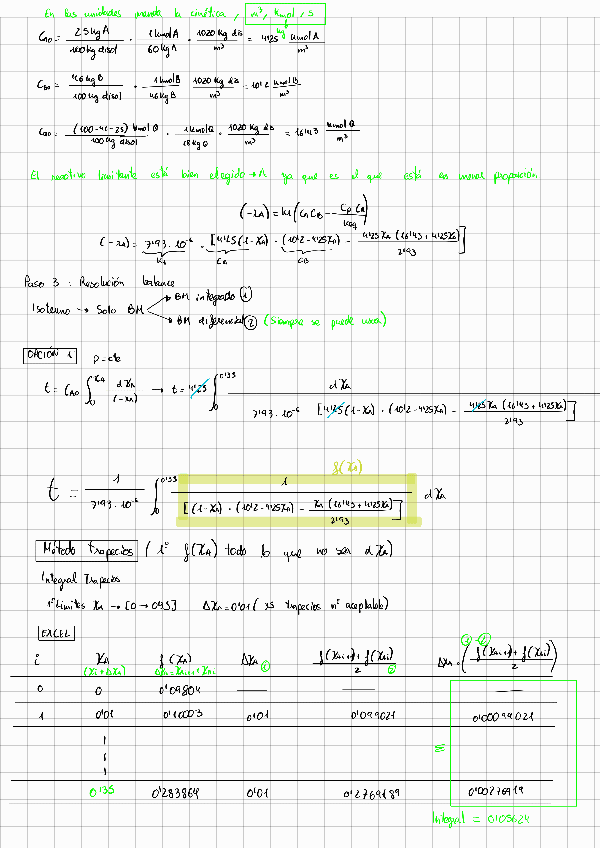 En las unidades manda la cinética, m³, kmol, s
C_A0 = 25 kg A / 100 kg disol · 1 kmol A / 60 kg A · 1020 kg dis / m³ = 4'25 kmol A / m³
C_B0 = 46 kg B / 100 kg disol · 1 kmol B / 46 kg B · 1020 kg dis / m³ = 10'2 kmol B / m³
C_Q0 = (100-46-25) kmol Q / 100 kg disol · 1 kmol Q / 18 kg Q · 1020 kg dis / m³ = 16'43 kmol Q / m³
El reactivo limitante está bien elegido → A ya que es el que está en menor proporción
(-r_A) = k_1 (C_A C_B - C_P C_Q / K_eq)
(-r_A) = 7'93 · 10⁻⁶ · [4'25 (1-X_A) · (10'2 - 4'25X_A) - 4'25X_A (16'43 + 4'25X_A) / 2'93]
k_1 C_A C_B
Paso 3: Resolución balance
Isotermo → Solo BM
BM integrado ①
BM diferencial ② (siempre se puede usar)
OPCIÓN 1 ρ-cte
t = C_A0 ∫_0^X_A dX_A / (-r_A) → t = 4'25 ∫_0^0'35 dX_A / 7'93 · 10⁻⁶ [4'25 (1-X_A) · (10'2 - 4'25X_A) - 4'25X_A (16'43 + 4'25X_A) / 2'93]
f(X_A)
t = 1 / 7'93 · 10⁻⁶ ∫_0^0'35 1 / [(1-X_A) · (10'2 - 4'25X_A) - X_A (16'43 + 4'25X_A) / 2'93] dX_A
Método trapecios (1º f(X_A) todo lo que no sea dX_A)
Integral Trapecios
1º Límites X_A → [0 → 0'35] ΔX_A = 0'01 (35 trapecios nº aceptable)
EXCEL
① · ②
i X_A f(X_A) ΔX_A ① f(X_Ai+1) + f(X_Ai) / 2 ② ΔX_A · (f(X_Ai+1) + f(X_Ai) / 2)
(X_i + ΔX_A) ΔX_A = X_Ai+1 - X_Ai
0 0 0'09804 — — —
1 0'01 0'10003 0'01 0'099021 0'00099021
Σ
0'35 0'283864 0'01 0'2769189 0'00276919
Integral = 0'05624